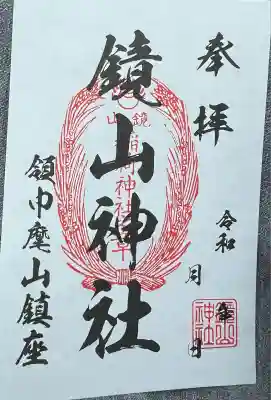 奉拝
令和 年 月 日
鏡山神社
鏡山
稲荷神社
領巾麾山鎮座